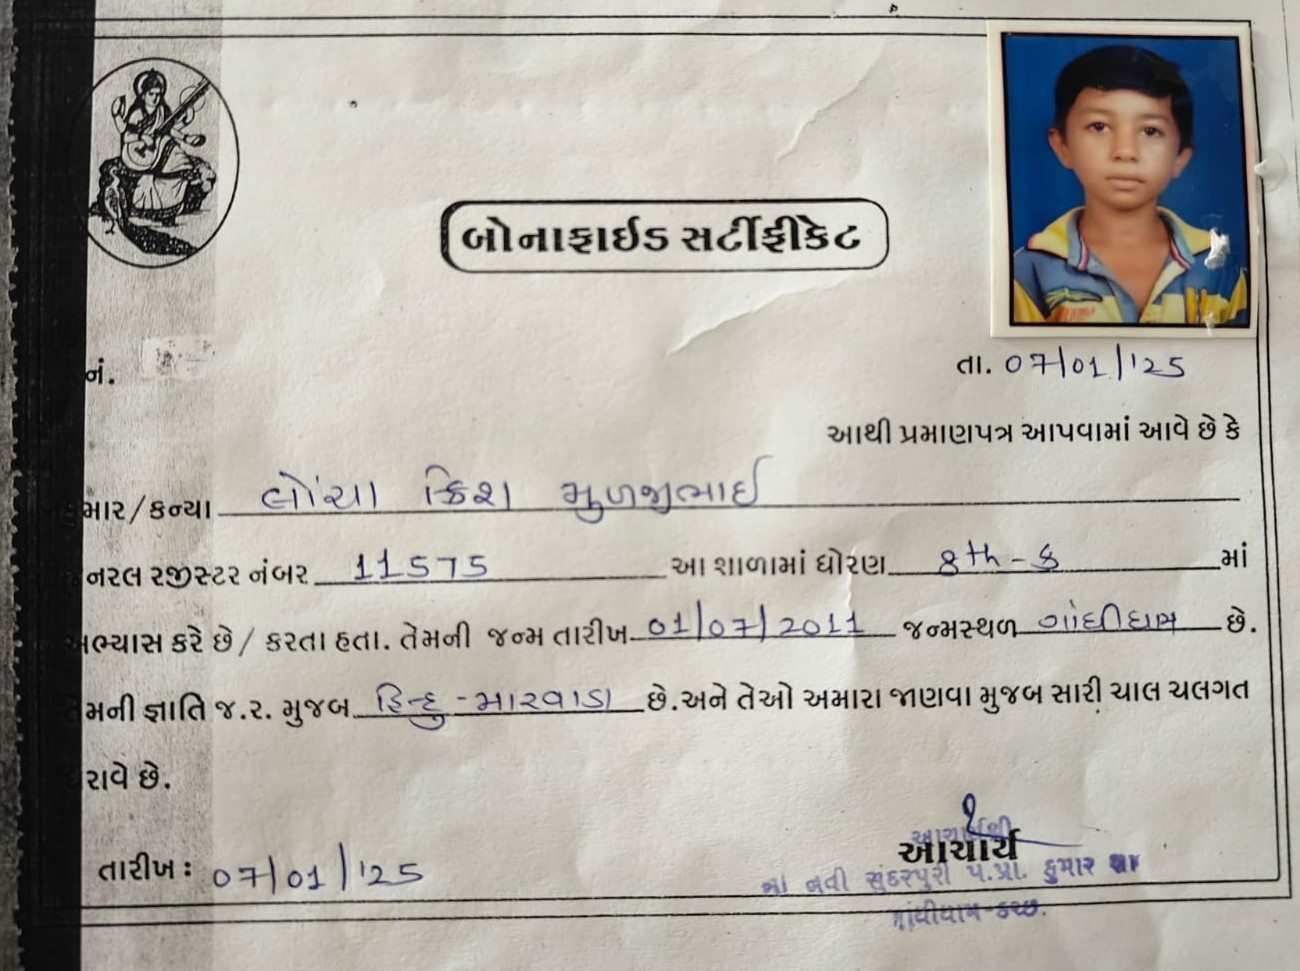 બોનાફાઈડ સર્ટીફીકેટ
નં.
તા. 07/01/'25
આથી પ્રમાણપત્ર આપવામાં આવે છે કે
કુમાર/કન્યા લોંચા ક્રિશ મુળજીભાઈ
જનરલ રજીસ્ટર નંબર 11575 આ શાળામાં ધોરણ 8th-ક માં
અભ્યાસ કરે છે/ કરતા હતા. તેમની જન્મ તારીખ 01/07/2011 જન્મસ્થળ ગાંધીધામ છે.
તેમની જ્ઞાતિ જ.ર. મુજબ હિન્દુ-મારવાડા છે.અને તેઓ અમારા જાણવા મુજબ સારી ચાલ ચલગત
ધરાવે છે.
તારીખ: 07/01/'25
આચાર્યશ્રી
આચાર્ય
નવી સુંદરપુરી પં.પ્રા. કુમાર શાળા
ગાંધીધામ-કચ્છ.